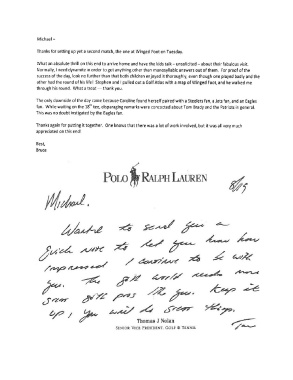 Michael –
Thanks for setting up yet a second match, the one at Winged Foot on Tuesday.
What an absolute thrill on this end to arrive home and have the kids talk - unsolicited - about their fabulous visit.
Normally, I need dynamite in order to get anything other than monosyllabic answers out of them. For proof of the
success of the day, look no further than that both children enjoyed it thoroughly, even though one played badly and the
other had the round of his life! Stephen and I pulled out a Golf Atlas with a map of Winged Foot, and he walked me
through his round. What a treat -- thank you.
The only downside of the day came because Caroline found herself paired with a Steelers fan, a Jets fan, and an Eagles
fan. While waiting on the 18th tee, disparaging remarks were concocted about Tom Brady and the Patriots in general.
This was no doubt instigated by the Eagles fan.
Thanks again for putting it together. One knows that there was a lot of work involved, but it was all very much
appreciated on this end!
Best,
Bruce
POLO RALPH LAUREN
8/19
Michael,
Wanted to send you a
quick note to let you know how
impressed I continue to be with
you. The golf world needs more
great golf pros like you. Keep it
up, you will do great things.
Tom
Thomas J Nolan
SENIOR VICE PRESIDENT, GOLF & TENNIS